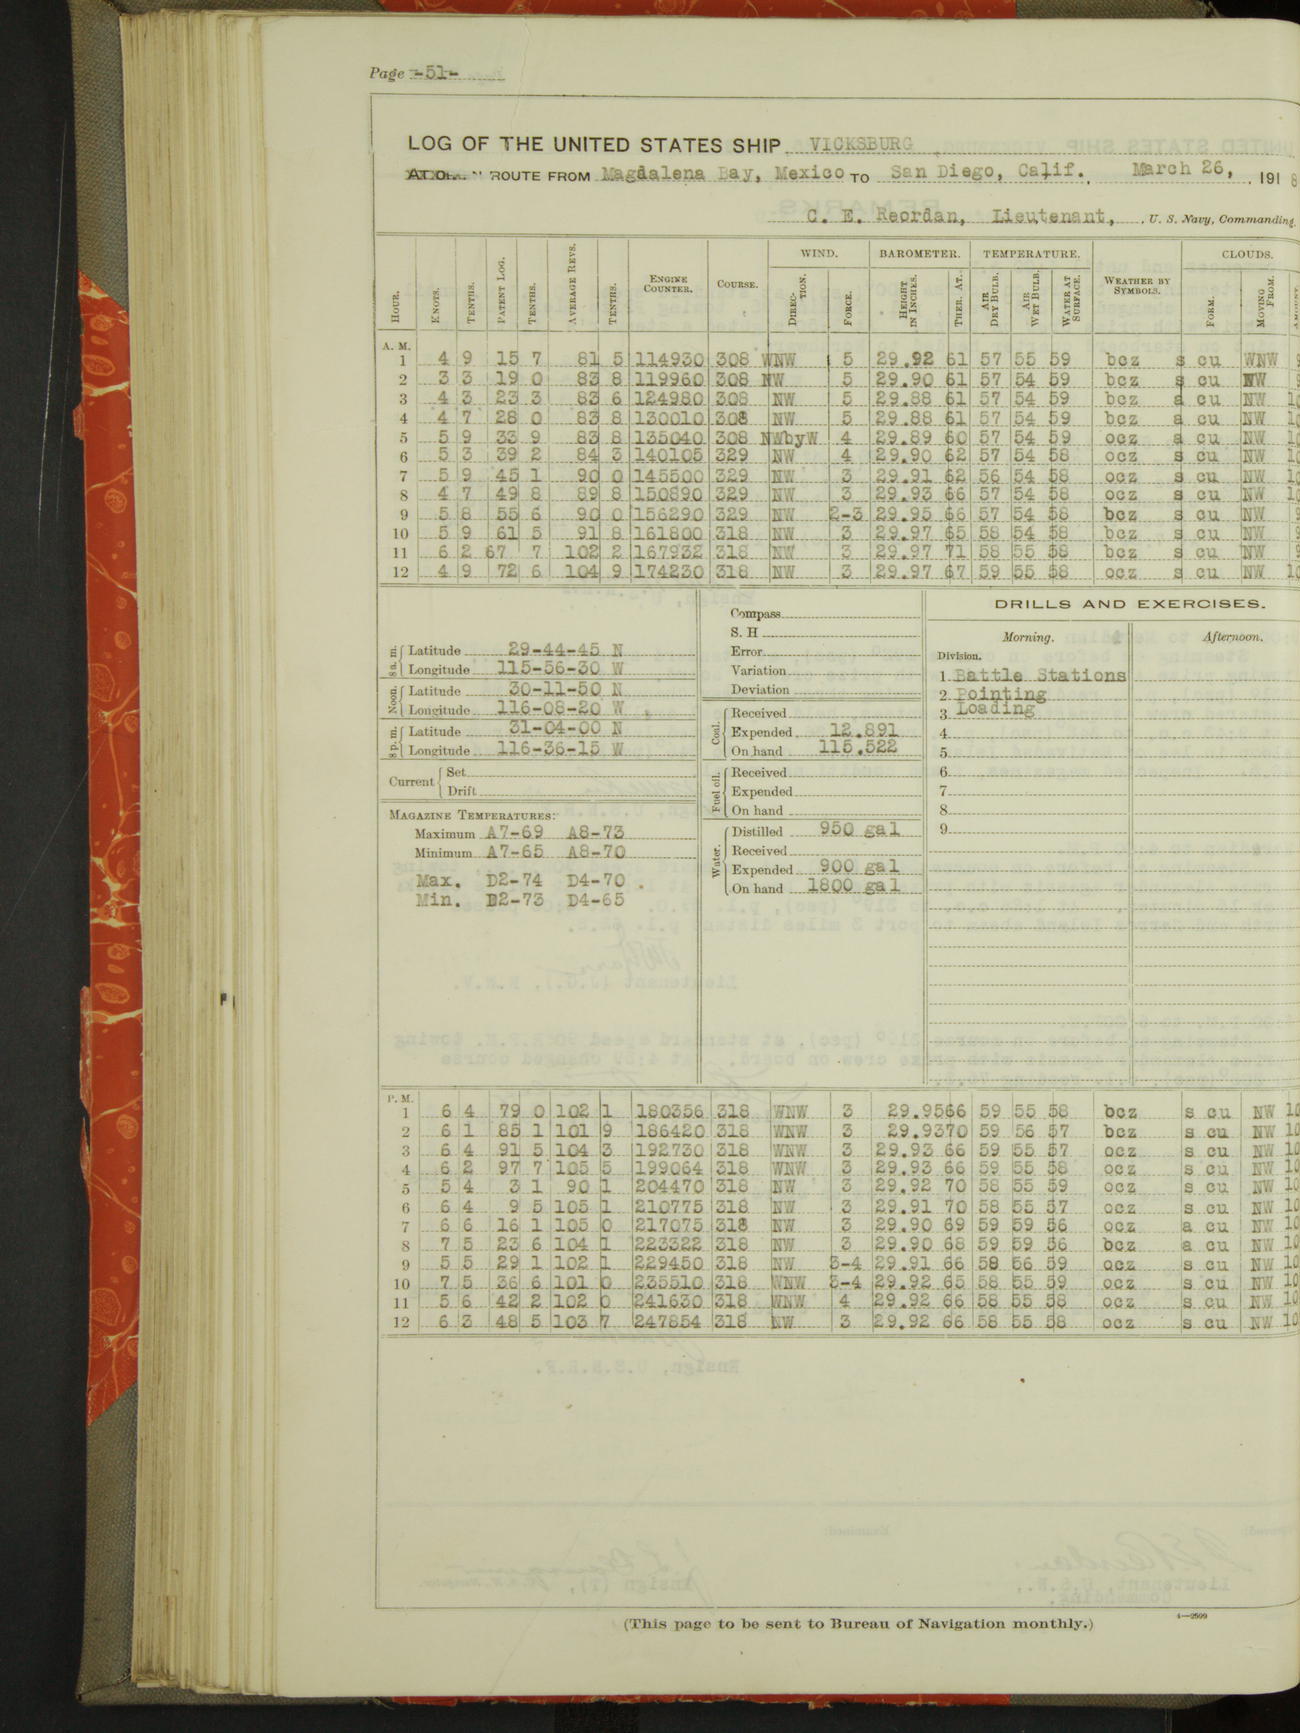 Page -51-
LOG OF THE UNITED STATES SHIP VICKSBURG
ROUTE FROM Magdalena Bay, Mexico TO San Diego, Calif., March 26, 1918
C. E. Reordan, Lieutenant, U. S. Navy, Commanding.
HOUR. KNOTS. TENTHS. PATENT LOG. TENTHS. AVERAGE REVS. TENTHS. ENGINE COUNTER. COURSE. WIND. DIRECTION. FORCE. BAROMETER. HEIGHT IN INCHES. THER. AT. TEMPERATURE. AIR DRY BULB. AIR WET BULB. WATER AT SURFACE. WEATHER BY SYMBOLS. CLOUDS. FORM. MOVING FROM.
A. M.
1 4 9 15 7 81 5 114930 308 WNW 5 29.92 61 57 55 59 bcz s cu WNW 9
2 3 3 19 0 83 8 119960 308 NW 5 29.90 61 57 54 59 bcz s cu NW 9
3 4 3 23 3 83 6 124980 308 NW 5 29.88 61 57 54 59 bcz a cu NW 10
4 4 7 28 0 83 8 130010 308 NW 5 29.88 61 57 54 59 bcz a cu NW 10
5 5 9 33 9 83 8 135040 308 NWbyW 4 29.89 60 57 54 59 ocz a cu NW 10
6 5 3 39 2 84 3 140105 329 NW 4 29.90 62 57 54 58 ocz s cu NW 10
7 5 9 45 1 90 0 145500 329 NW 3 29.91 62 56 54 58 ocz s cu NW 10
8 4 7 49 8 89 8 150890 329 NW 3 29.93 66 57 54 58 ocz s cu NW 10
9 5 8 55 6 90 0 156290 329 NW 2-3 29.95 66 57 54 58 bcz s cu NW 9
10 5 9 61 5 91 8 161800 318 NW 3 29.97 65 58 54 58 bcz s cu NW 9
11 6 2 67 7 102 2 167932 318 NW 3 29.97 71 58 55 58 bcz s cu NW 9
12 4 9 72 6 104 9 174230 318 NW 3 29.97 67 59 55 58 ocz s cu NW 10
8 a. m. Latitude 29-44-45 N
Longitude 115-56-30 W
Noon. Latitude 30-11-50 N
Longitude 116-08-20 W
8 p. m. Latitude 31-04-00 N
Longitude 116-36-15 W
Current Set
Drift
MAGAZINE TEMPERATURES:
Maximum A7-69 A8-73
Minimum A7-65 A8-70
Max. D2-74 D4-70
Min. D2-73 D4-65
Compass
S. H
Error
Variation
Deviation
Coal. Received
Expended 12.891
On hand 115.522
Fuel oil. Received
Expended
On hand
Water. Distilled 950 gal
Received
Expended 900 gal
On hand 1800 gal
DRILLS AND EXERCISES.
Morning. Afternoon.
Division.
1 Battle Stations
2 Pointing
3 Loading
4
5
6
7
8
9
P. M.
1 6 4 79 0 102 1 180356 318 WNW 3 29.95 66 59 55 58 bcz s cu NW 10
2 6 1 85 1 101 9 186420 318 WNW 3 29.93 70 59 56 57 bcz s cu NW 10
3 6 4 91 5 104 3 192730 318 WNW 3 29.93 66 59 55 57 ocz s cu NW 10
4 6 2 97 7 105 5 199064 318 WNW 3 29.93 66 59 55 58 ocz s cu NW 10
5 5 4 3 1 90 1 204470 318 NW 3 29.92 70 58 55 59 ocz s cu NW 10
6 6 4 9 5 105 1 210775 318 NW 3 29.91 70 58 55 57 ocz s cu NW 10
7 6 6 16 1 105 0 217075 318 NW 3 29.90 69 59 59 56 ocz a cu NW 10
8 7 5 23 6 104 1 223322 318 NW 3 29.90 68 59 59 56 bcz a cu NW 10
9 5 5 29 1 102 1 229450 318 NW 3-4 29.91 66 58 56 59 ocz s cu NW 10
10 7 5 36 6 101 0 235510 318 WNW 3-4 29.92 65 58 55 59 ocz s cu NW 10
11 5 6 42 2 102 0 241630 318 WNW 4 29.92 66 58 55 58 ocz s cu NW 10
12 6 3 48 5 103 7 247854 318 NW 3 29.92 66 58 55 58 ocz s cu NW 10
(This page to be sent to Bureau of Navigation monthly.)
4—2599